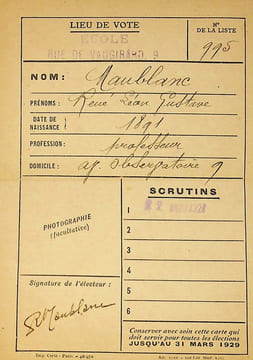 LIEU DE VOTE
N°
DE LA LISTE
ECOLE
RUE DE VAUGIRARD 9
995
NOM: Maublanc
PRÉNOMS: René Léon Gustave
DATE DE
NAISSANCE 1891
PROFESSION: professeur
DOMICILE: av. Observatoire 9
PHOTOGRAPHIE
(facultative)
SCRUTINS
1
2
3
4
5
6
Signature de l'électeur:
RMaublanc
Conserver avec soin cette carte qui
doit servir pour toutes les élections
JUSQU'AU 31 MARS 1929